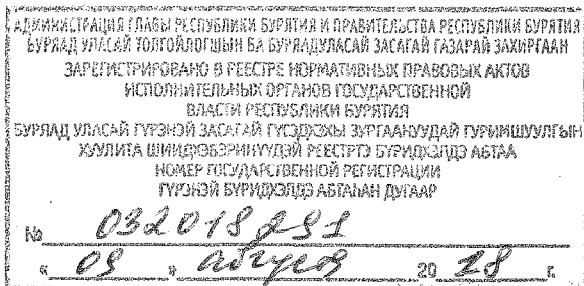 АДМИНИСТРАЦИЯ ГЛАВЫ РЕСПУБЛИКИ БУРЯТИЯ И ПРАВИТЕЛЬСТВА РЕСПУБЛИКИ БУРЯТИЯ
БУРЯАД УЛАСАЙ ТОЛГОЙЛОГШЫН БА БУРЯАД УЛАСАЙ ЗАСАГАЙ ГАЗАРАЙ ЗАХИРГААН
ЗАРЕГИСТРИРОВАНО В РЕЕСТРЕ НОРМАТИВНЫХ ПРАВОВЫХ АКТОВ
ИСПОЛНИТЕЛЬНЫХ ОРГАНОВ ГОСУДАРСТВЕННОЙ
ВЛАСТИ РЕСПУБЛИКИ БУРЯТИЯ
БУРЯАД УЛАСАЙ ГҮРЭНЭЙ ЗАСАГАЙ ГҮСЭДХЭХЫ ЗУРГААНУУДАЙ ГУРИМШУУЛГЫН
ХУУЛИТА ШИИДХЭБЭРИНҮҮДЭЙ РЕЕСТРТЭ БҮРИДХЭЛДЭ АБТАА
НОМЕР ГОСУДАРСТВЕННОЙ РЕГИСТРАЦИИ
ГҮРЭНЭЙ БҮРИДХЭЛДЭ АБТАҺАН ДУГААР
№ 032018291
« 09 » августа 20 18 г.